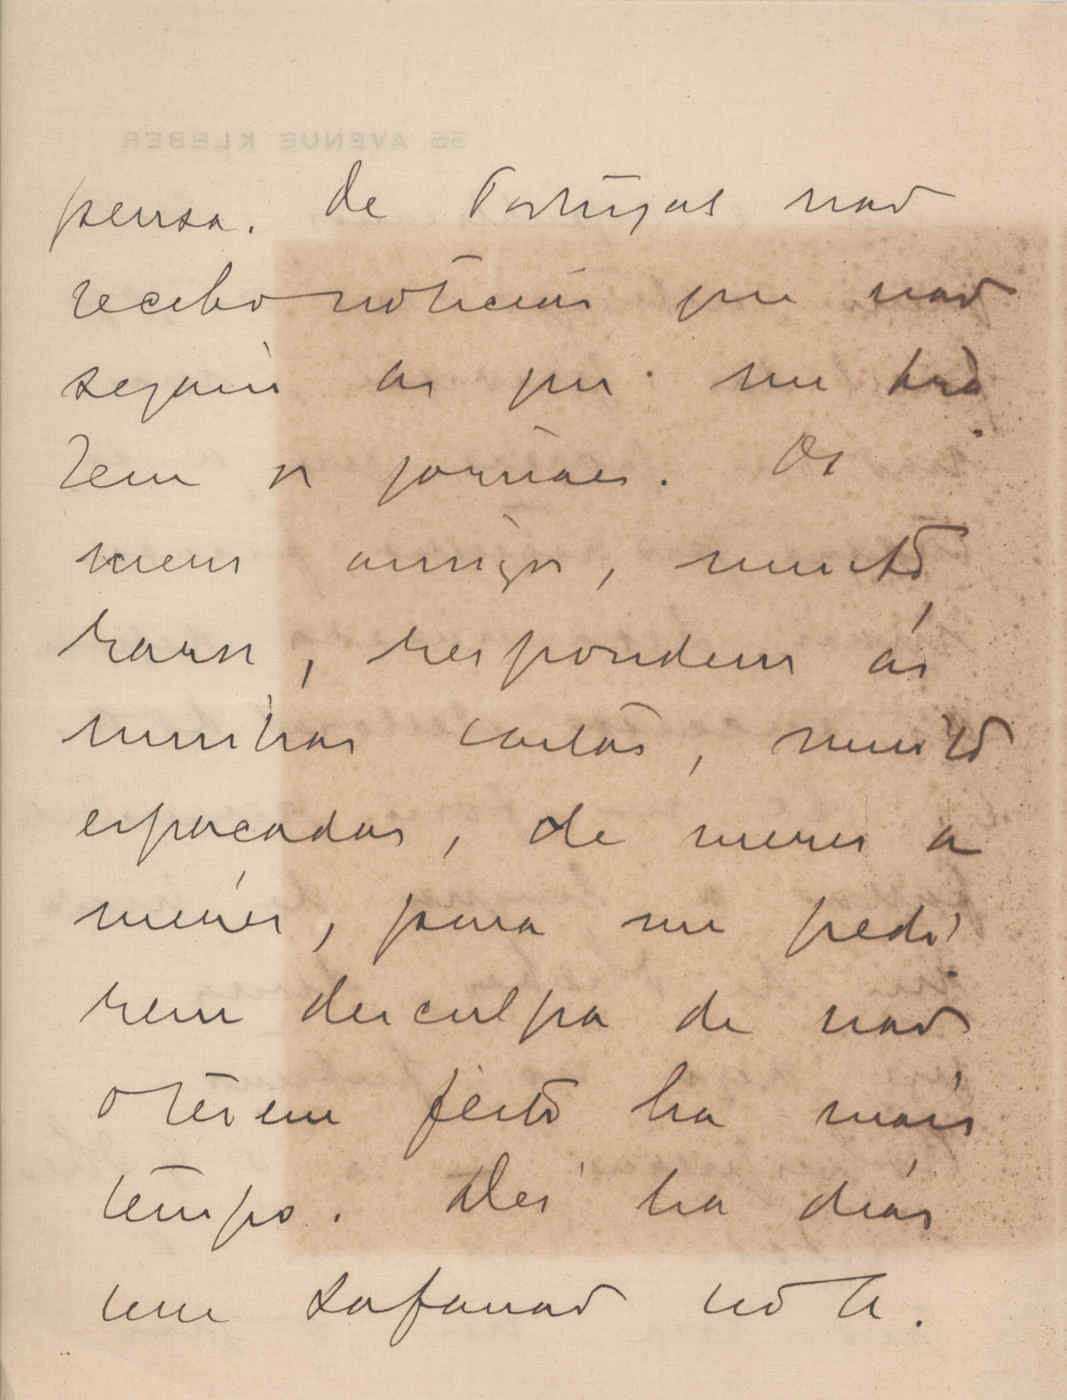 55 AVENUE KLEBER
pensa. De Portugal não
recebo noticias que não
sejam as que me tra
zem os jornaes. Os
meus amigos, muito
raros, respondem ás
minhas cartas, muito
espaçadas, de mezes a
mezes, para me pedi
rem desculpa de não
o terem feito ha mais
tempo. Dei ha dias
um safanão